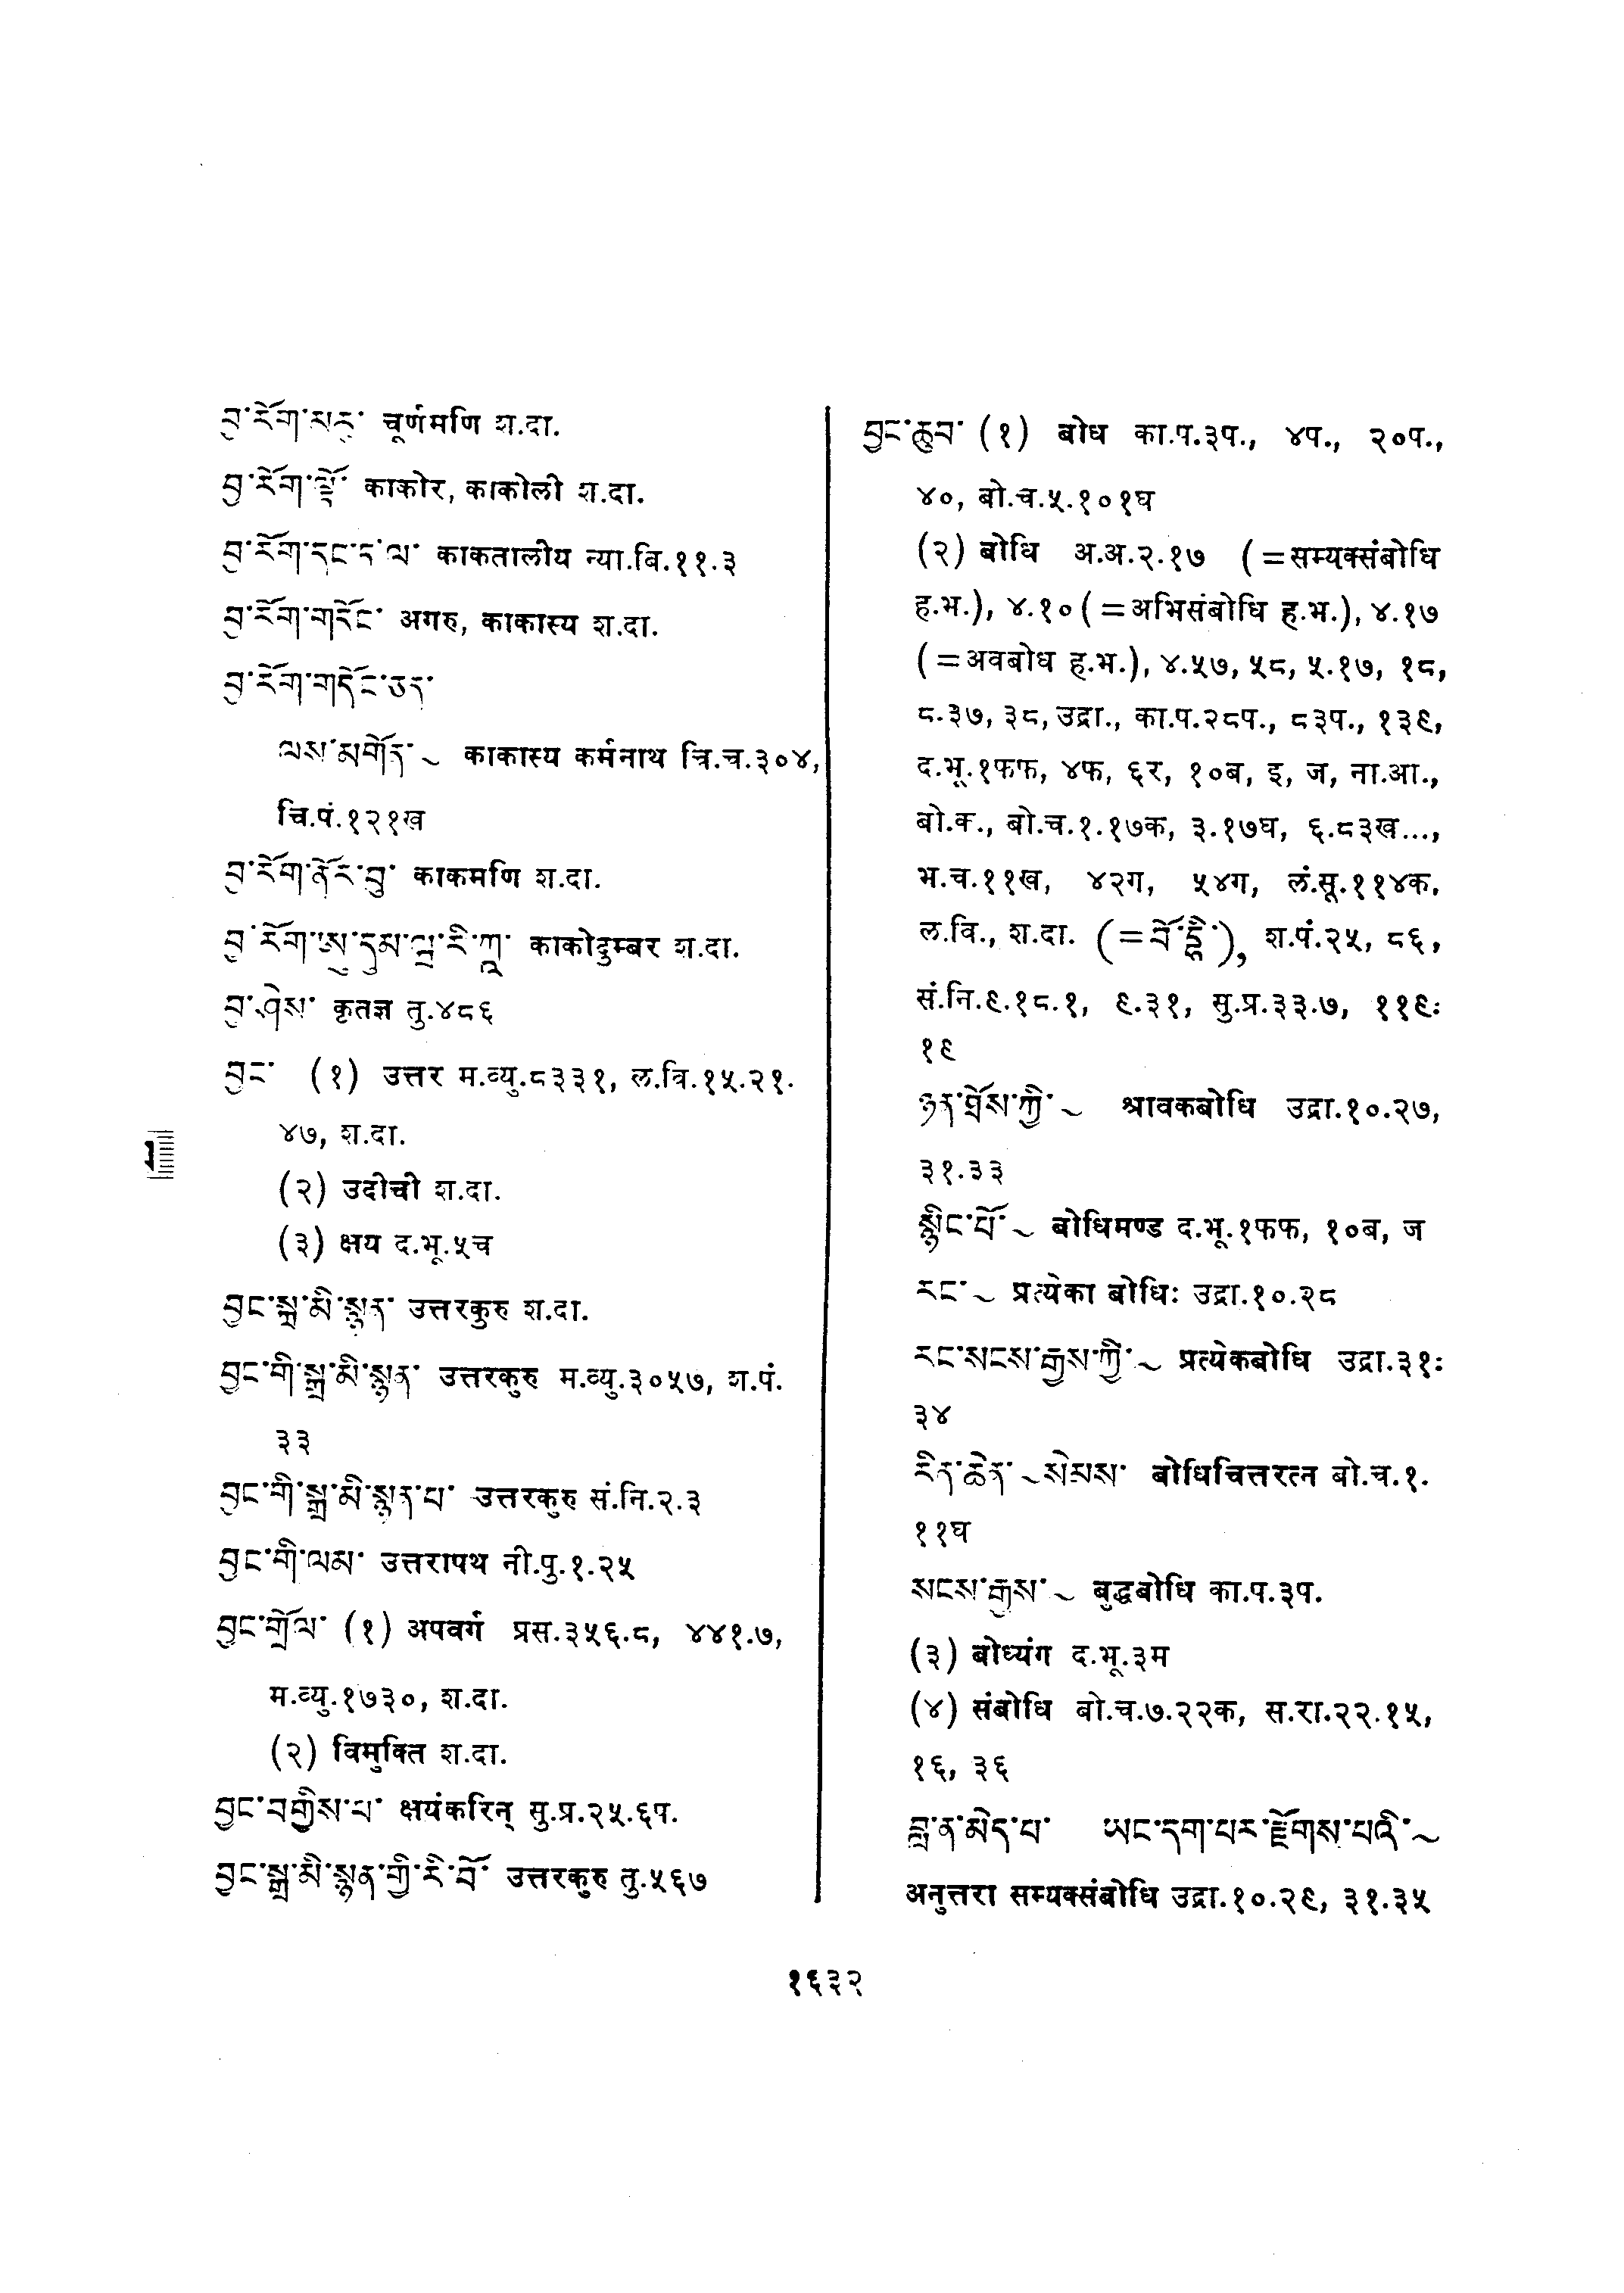 བྱ་རོག་མདུ་ चूर्णमणि श.दा.
བྱ་རོག་ལྡོ་ काकोर, काकोली श.दा.
བྱ་རོག་དང་ཏ་ལ་ काकतालीय न्या.बि.११.३
བྱ་རོག་གདོང་ अगरु, काकास्य श.दा.
བྱ་རོག་གདོང་ཅན་
ལས་མགོན་~ काकास्य कर्मनाथ त्रि.च.३०४,
त्रि.पं.१२१ख
བྱ་རོག་ནོར་བུ་ काकमणि श.दा.
བྱ་རོག་ཨུ་དུམ་ལྦ་རི་ཀཱ་ काकोदुम्बर श.दा.
བྱ་ཤེས་ कृतज्ञ तु.४८६
བྱང་ (१) उत्तर म.व्यु.८३३१, ल.वि.१५.२१.
४७, श.दा.
(२) उदीची श.दा.
(३) क्षय द.भू.५च
བྱང་སྒྲ་མི་སྙན་ उत्तरकुरु श.दा.
བྱང་གི་སྒྲ་མི་སྙན་ उत्तरकुरु म.व्यु.३०५७, श.पं.
३३
བྱང་གི་སྒྲ་མི་སྙན་པ་ उत्तरकुरु सं.नि.२.३
བྱང་གི་ལམ་ उत्तरापथ नी.पु.१.२५
བྱང་གྲོལ་ (१) अपवर्ग प्रस.३५६.८, ४४१.७,
म.व्यु.१७३०, श.दा.
(२) विमुक्ति श.दा.
བྱང་བགྱིས་པ་ क्षयंकरिन् सु.प्र.२५.६प.
བྱང་སྒྲ་མི་སྙན་གྱི་རི་བོ་ उत्तरकुरु तु.५६७
བྱང་ཆུབ་ (१) बोध का.प.३प., ४प., २०प.,
४०, बो.च.५.१०१घ
(२) बोधि अ.अ.२.१७ (=सम्यक्संबोधि
ह.भ.), ४.१० (=अभिसंबोधि ह.भ.), ४.१७
(=अवबोध ह.भ.), ४.५७, ५८, ५.१७, १८,
८.३७, ३८, उद्रा., का.प.२८प., ८३प., १३९,
द.भू.१फफ, ४फ, ६र, १०ब, इ, ज, ना.आ.,
बो.क., बो.च.१.१७क, ३.१७घ, ६.८३ख...,
भ.च.११ख, ४२ग, ५४ग, लं.सू.११४क,
ल.वि., श.दा. (=བོ་དྷི་), श.पं.२५, ८६,
सं.नि.९.१८.१, ९.३१, सु.प्र.३३.७, ११९:
१९
ཉན་ཐོས་ཀྱི་~ श्रावकबोधि उद्रा.१०.२७,
३१.३३
སྙིང་པོ་~ बोधिमण्ड द.भू.१फफ, १०ब, ज
རང་~ प्रत्येका बोधिः उद्रा.१०.२८
རང་སངས་རྒྱས་ཀྱི་~ प्रत्येकबोधि उद्रा.३१:
३४
རིན་ཆེན་~སེམས་ बोधिचित्तरत्न बो.च.१.
११घ
སངས་རྒྱས་~ बुद्धबोधि का.प.३प.
(३) बोध्यंग द.भू.३म
(४) संबोधि बो.च.७.२२क, स.रा.२२.१५,
१६, ३६
བླ་ན་མེད་པ་ ཡང་དག་པར་རྫོགས་པའི་~
अनुत्तरा सम्यक्संबोधि उद्रा.१०.२९, ३१.३५
१६३२